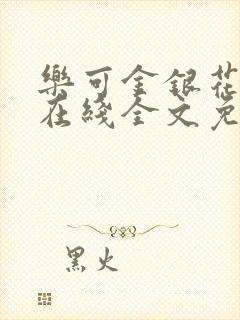 樂可金銀花
在綫全文免
黑火